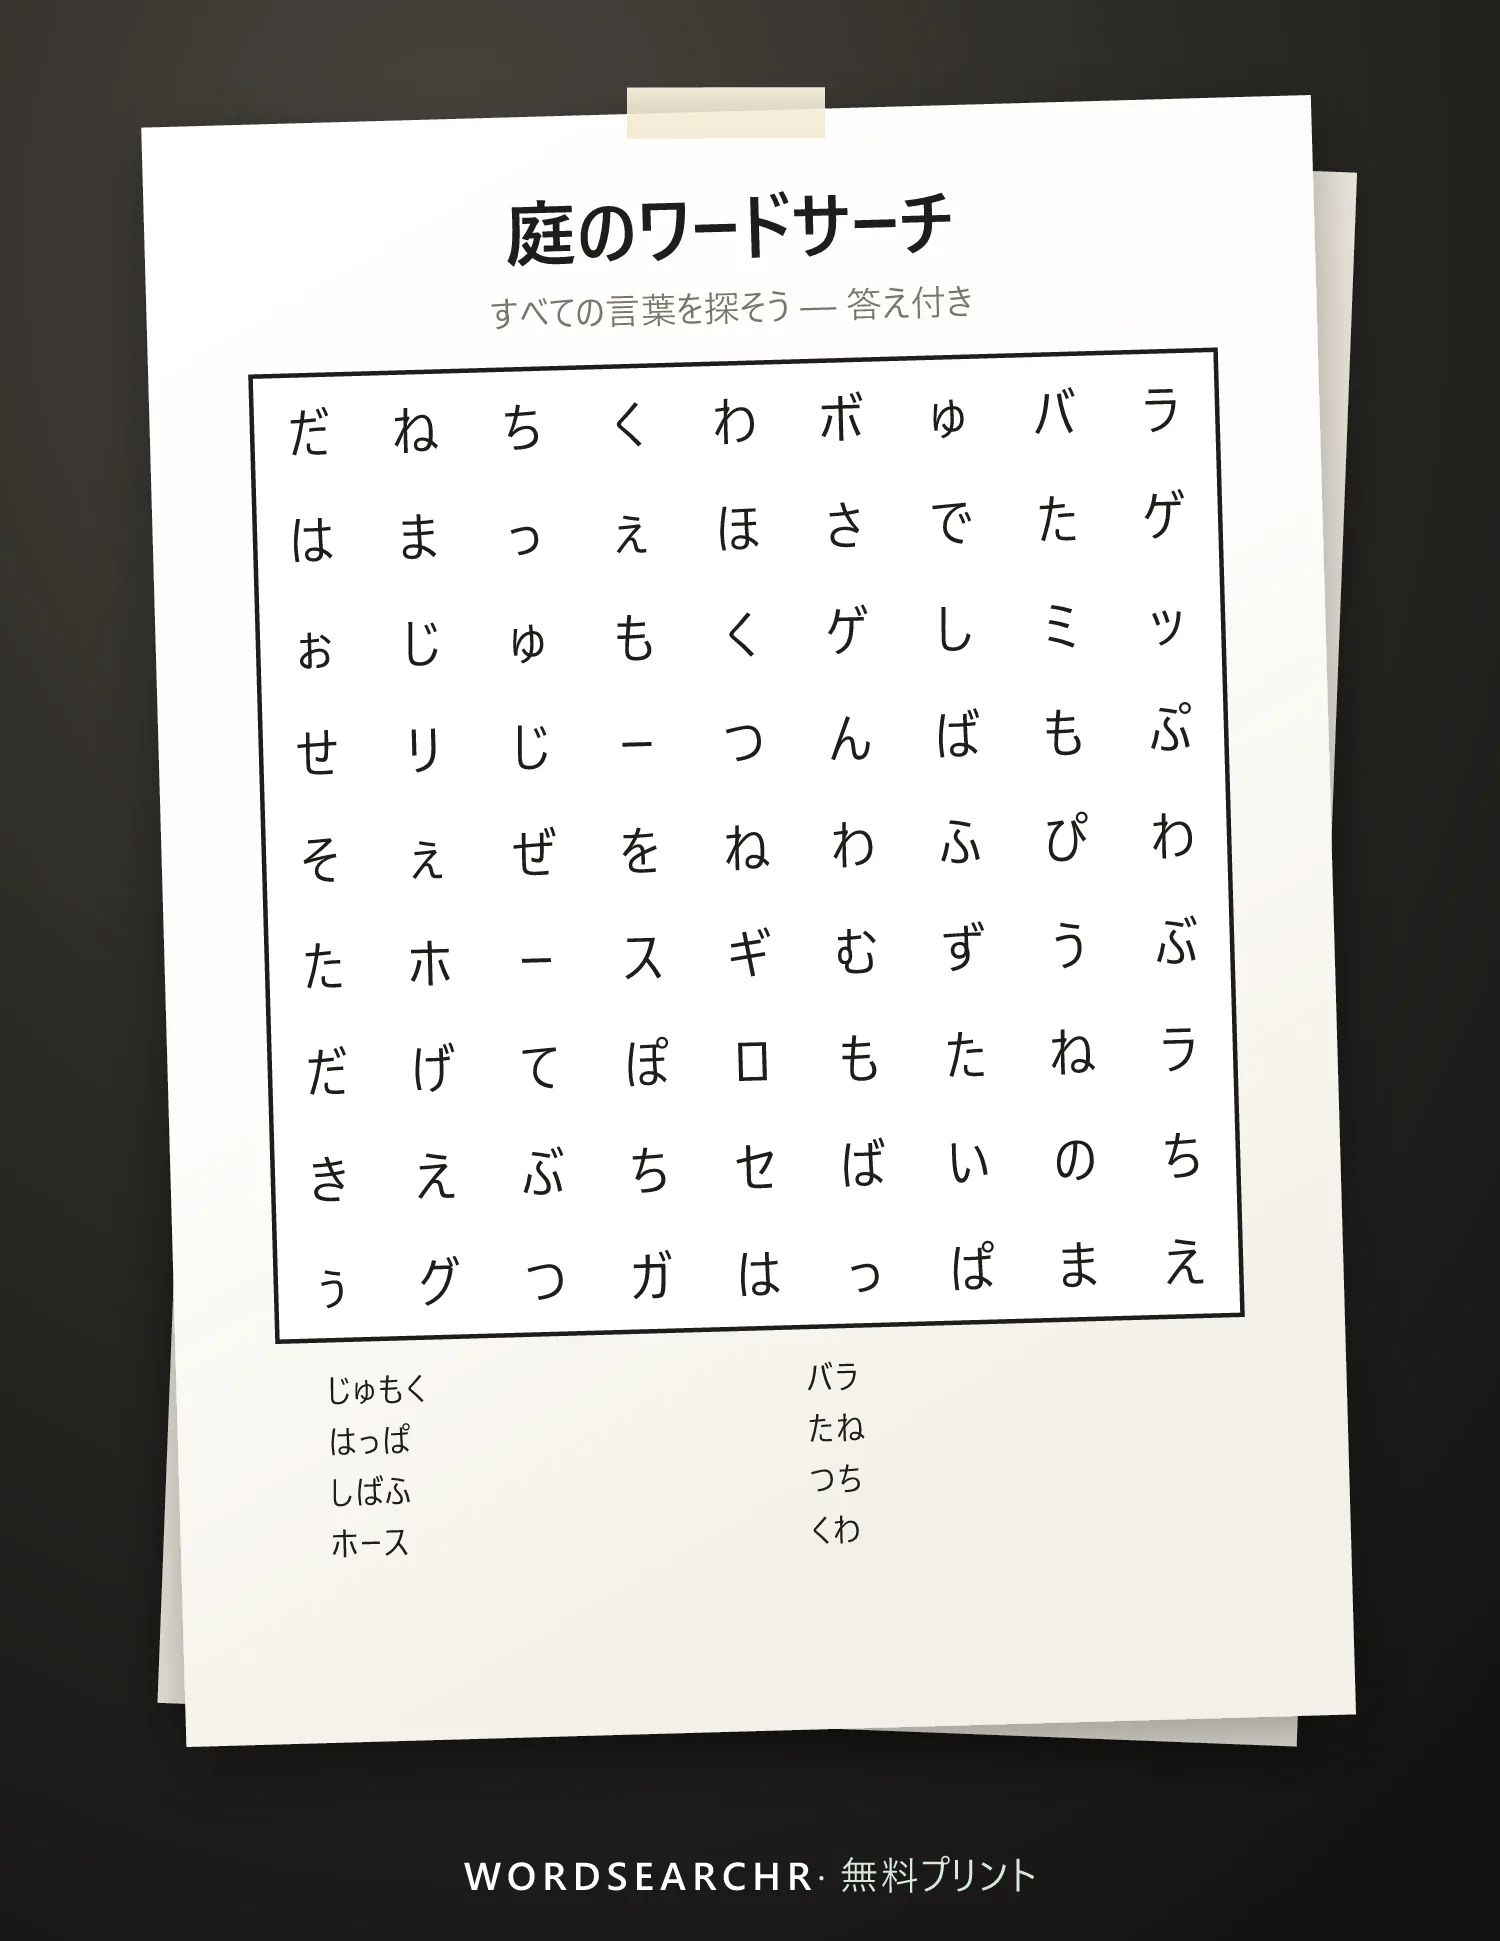 庭のワードサーチ
すべての言葉を探そう — 答え付き
だ ね ち く わ ボ ゅ バ ラ
は ま っ ぇ ほ さ で た ゲ
ぉ じ ゅ も く ゲ し ミ ッ
せ リ じ ー つ ん ば も ぷ
そ ぇ ぜ を ね わ ふ ぴ わ
た ホ ー ス ギ む ず う ぶ
だ げ て ぽ ロ も た ね ラ
き え ぶ ち セ ば い の ち
ぅ グ つ ガ は っ ぱ ま え
じゅもく バラ
はっぱ たね
しばふ つち
ホース くわ
WORDSEARCHR· 無料プリント